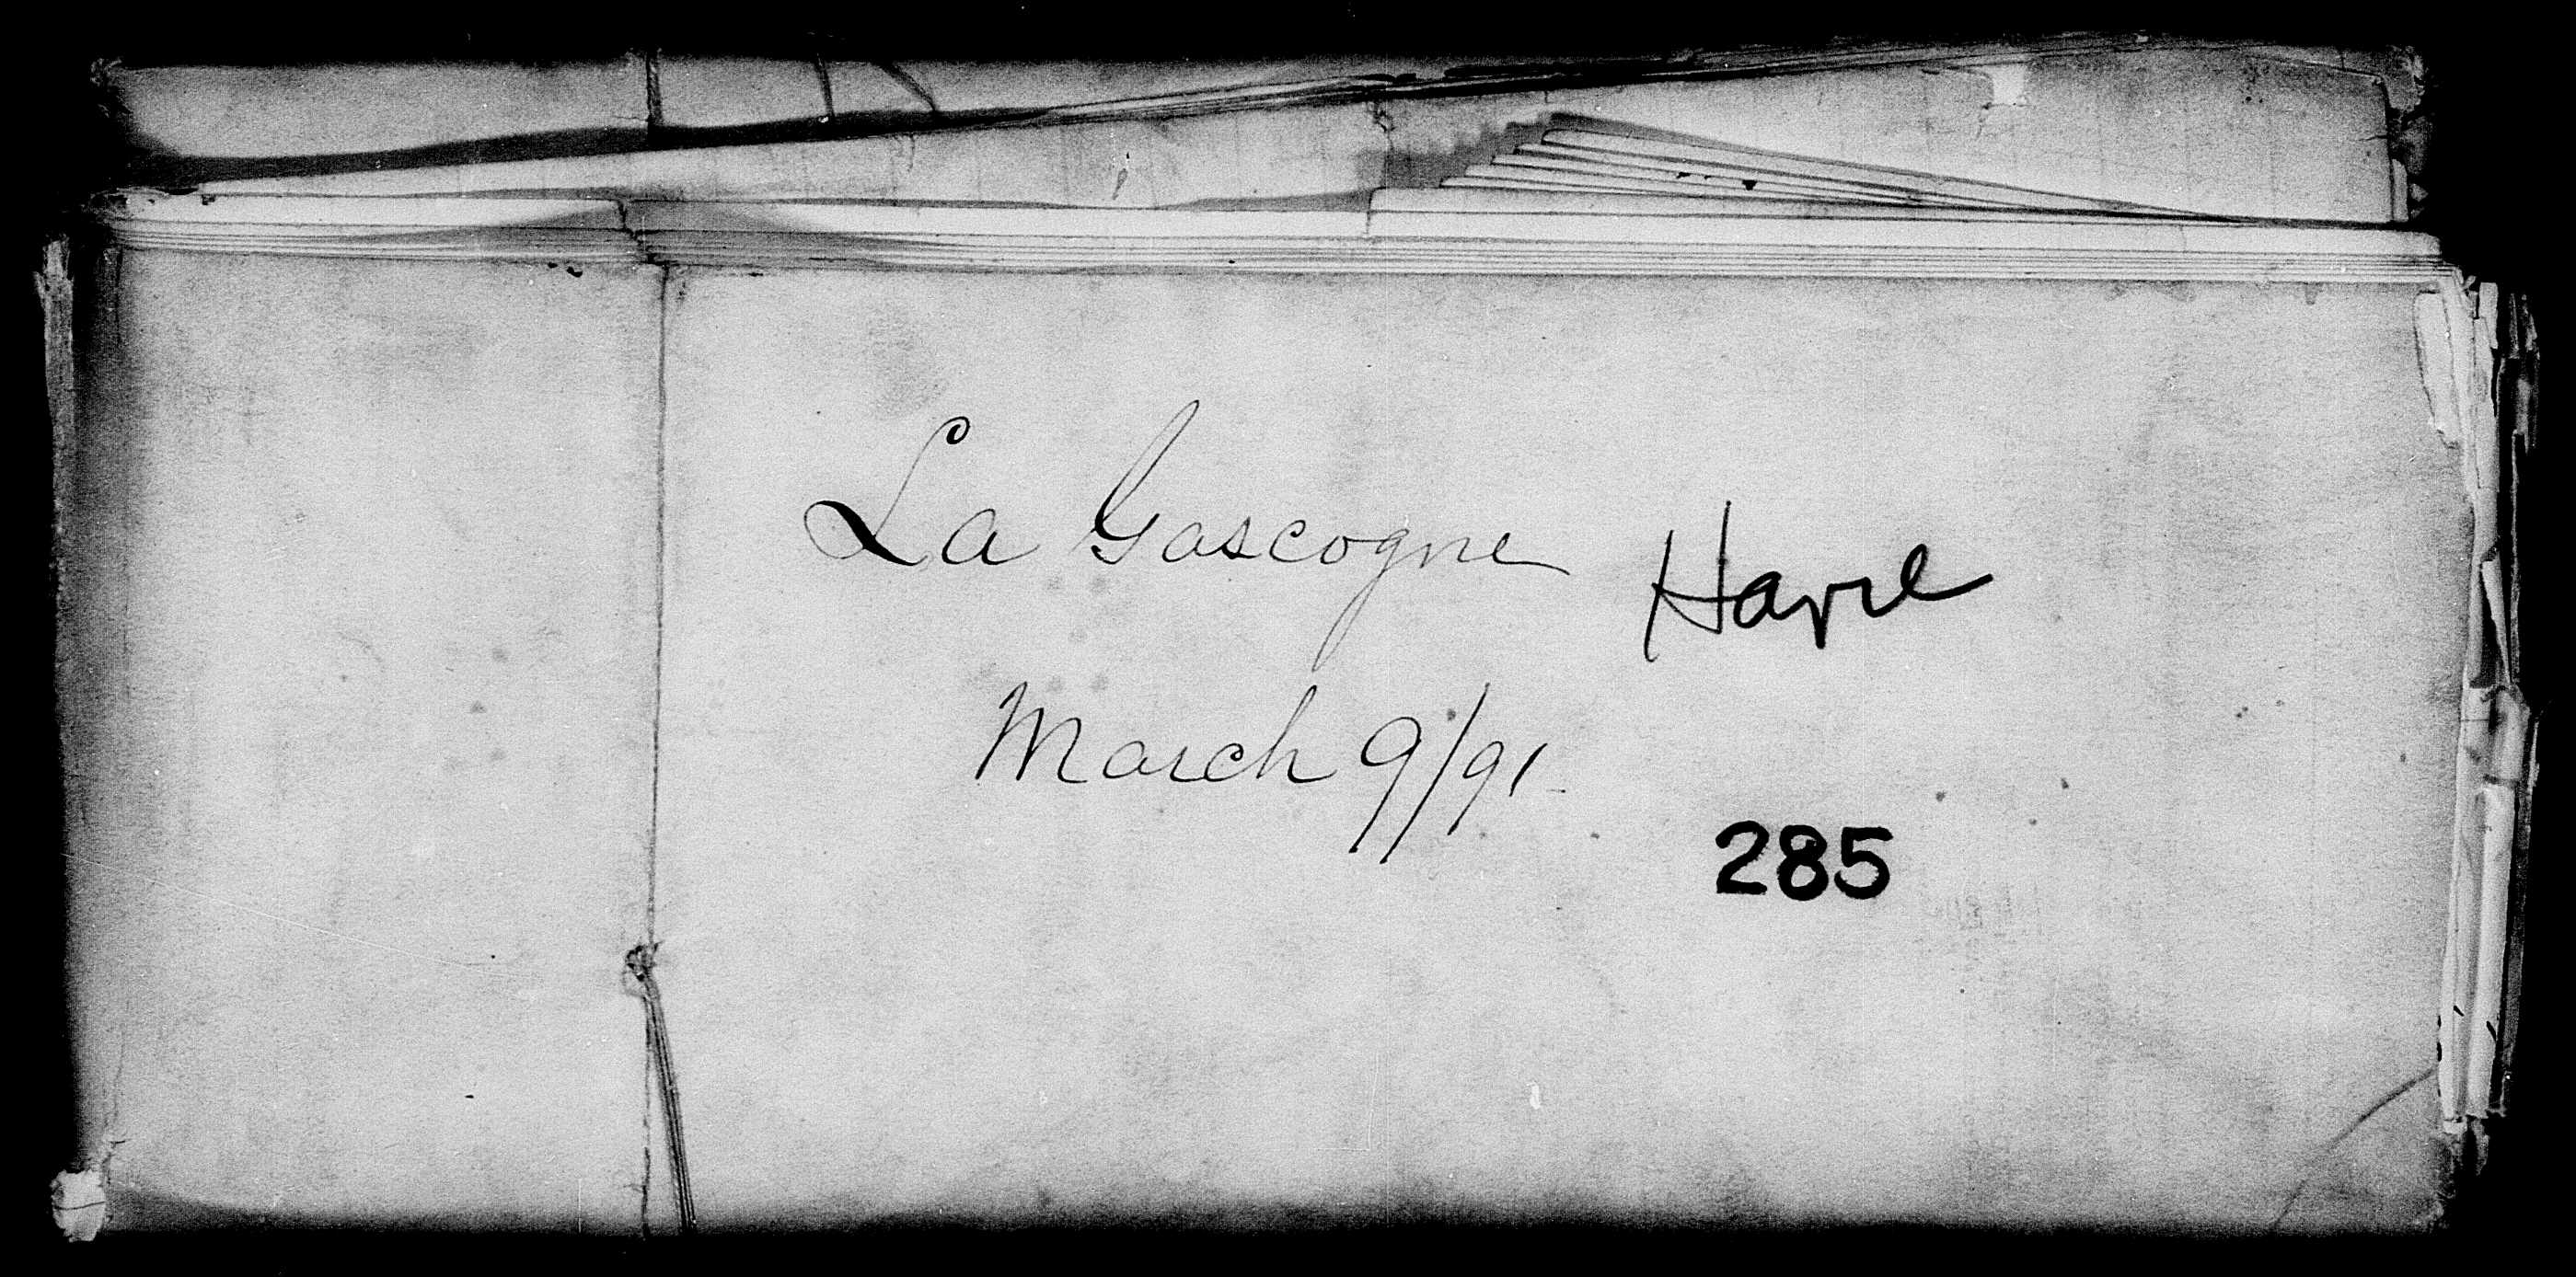 La Gascogne
Havre
March 9/91
285